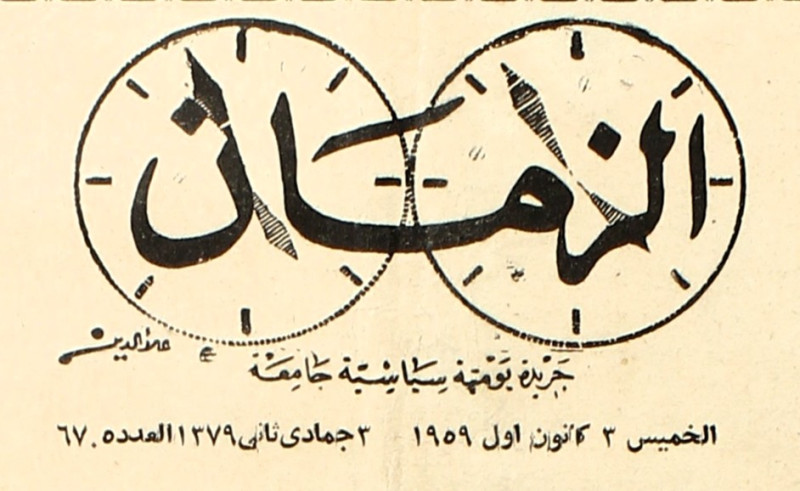 الزمان
علاءالدين
جريدة يومية سياسية جامعة
الخميس ٣ كانون اول ١٩٥٩ ٣ جمادى ثاني ١٣٧٩ العدد ٦٧٠٥